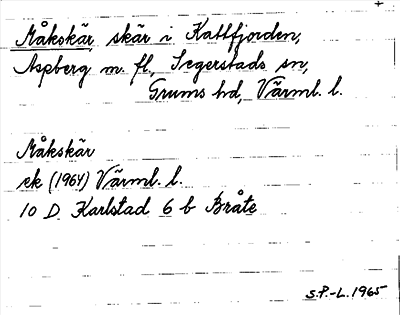 Måkskär, skär i Kattfjorden,
Aspberg m. fl., Segerstads sn,
Grums hd, Värml. l.
Måkskär
ek (1964) Värml. l.
10 D Karlstad 6 b Bråte
S.P.-L. 1965